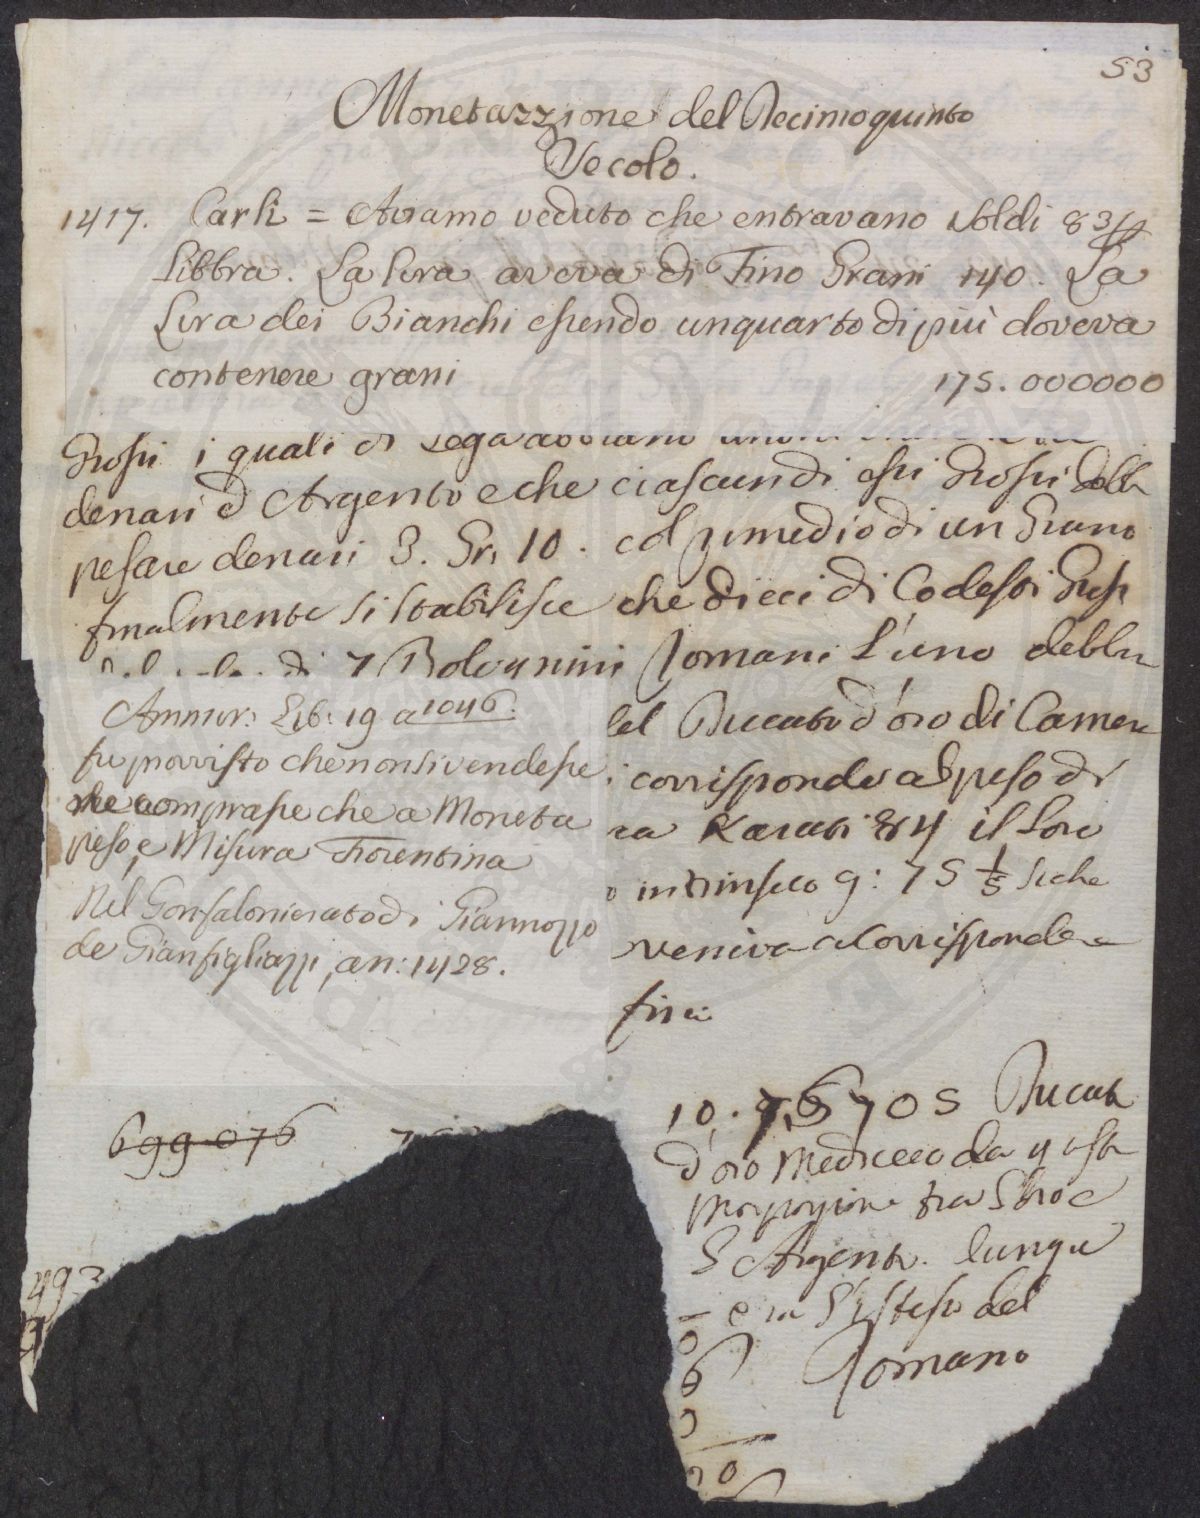 53
Monetazzione del Decimoquinto
Secolo.
1417. Carli = Avamo veduto che entravano Soldi 83 
Libbra. La Lira aveva di Fino Grani 140. La
Lira dei Bianchi essendo un quarto di più doveva
contenere grani 175.000000
Grossi i quali di Lega
denari d'Argento e che ciascun di essi Grossi debba
pesare denari 3. Gr. 10. col rimedio di un Grano
finalmente si stabilisce che dieci di Codesti Grossi
di 7 Bolognini Romani l'uno debba
Ammir: Lib: 19 a 1046.
fu provvisto che non si vendesse
ne comprasse che a Moneta
peso, e Misura Fiorentina
Nel Gonfalonierato di Giannozzo
de Gianfigliazzi, an: 1428.
Ducato d'oro di Camera
corrisponde al peso di
Karati 84 il Loro
intrinseco g: 75 1/5 siche
veniva a Corrispondere
fina
699 076
493
10. 705 Ducato
d'oro Mediceo da questa
proporzione tra l'oro e
l'Argento. Dunque
era l'istesso del
Romano
0
6
0
20